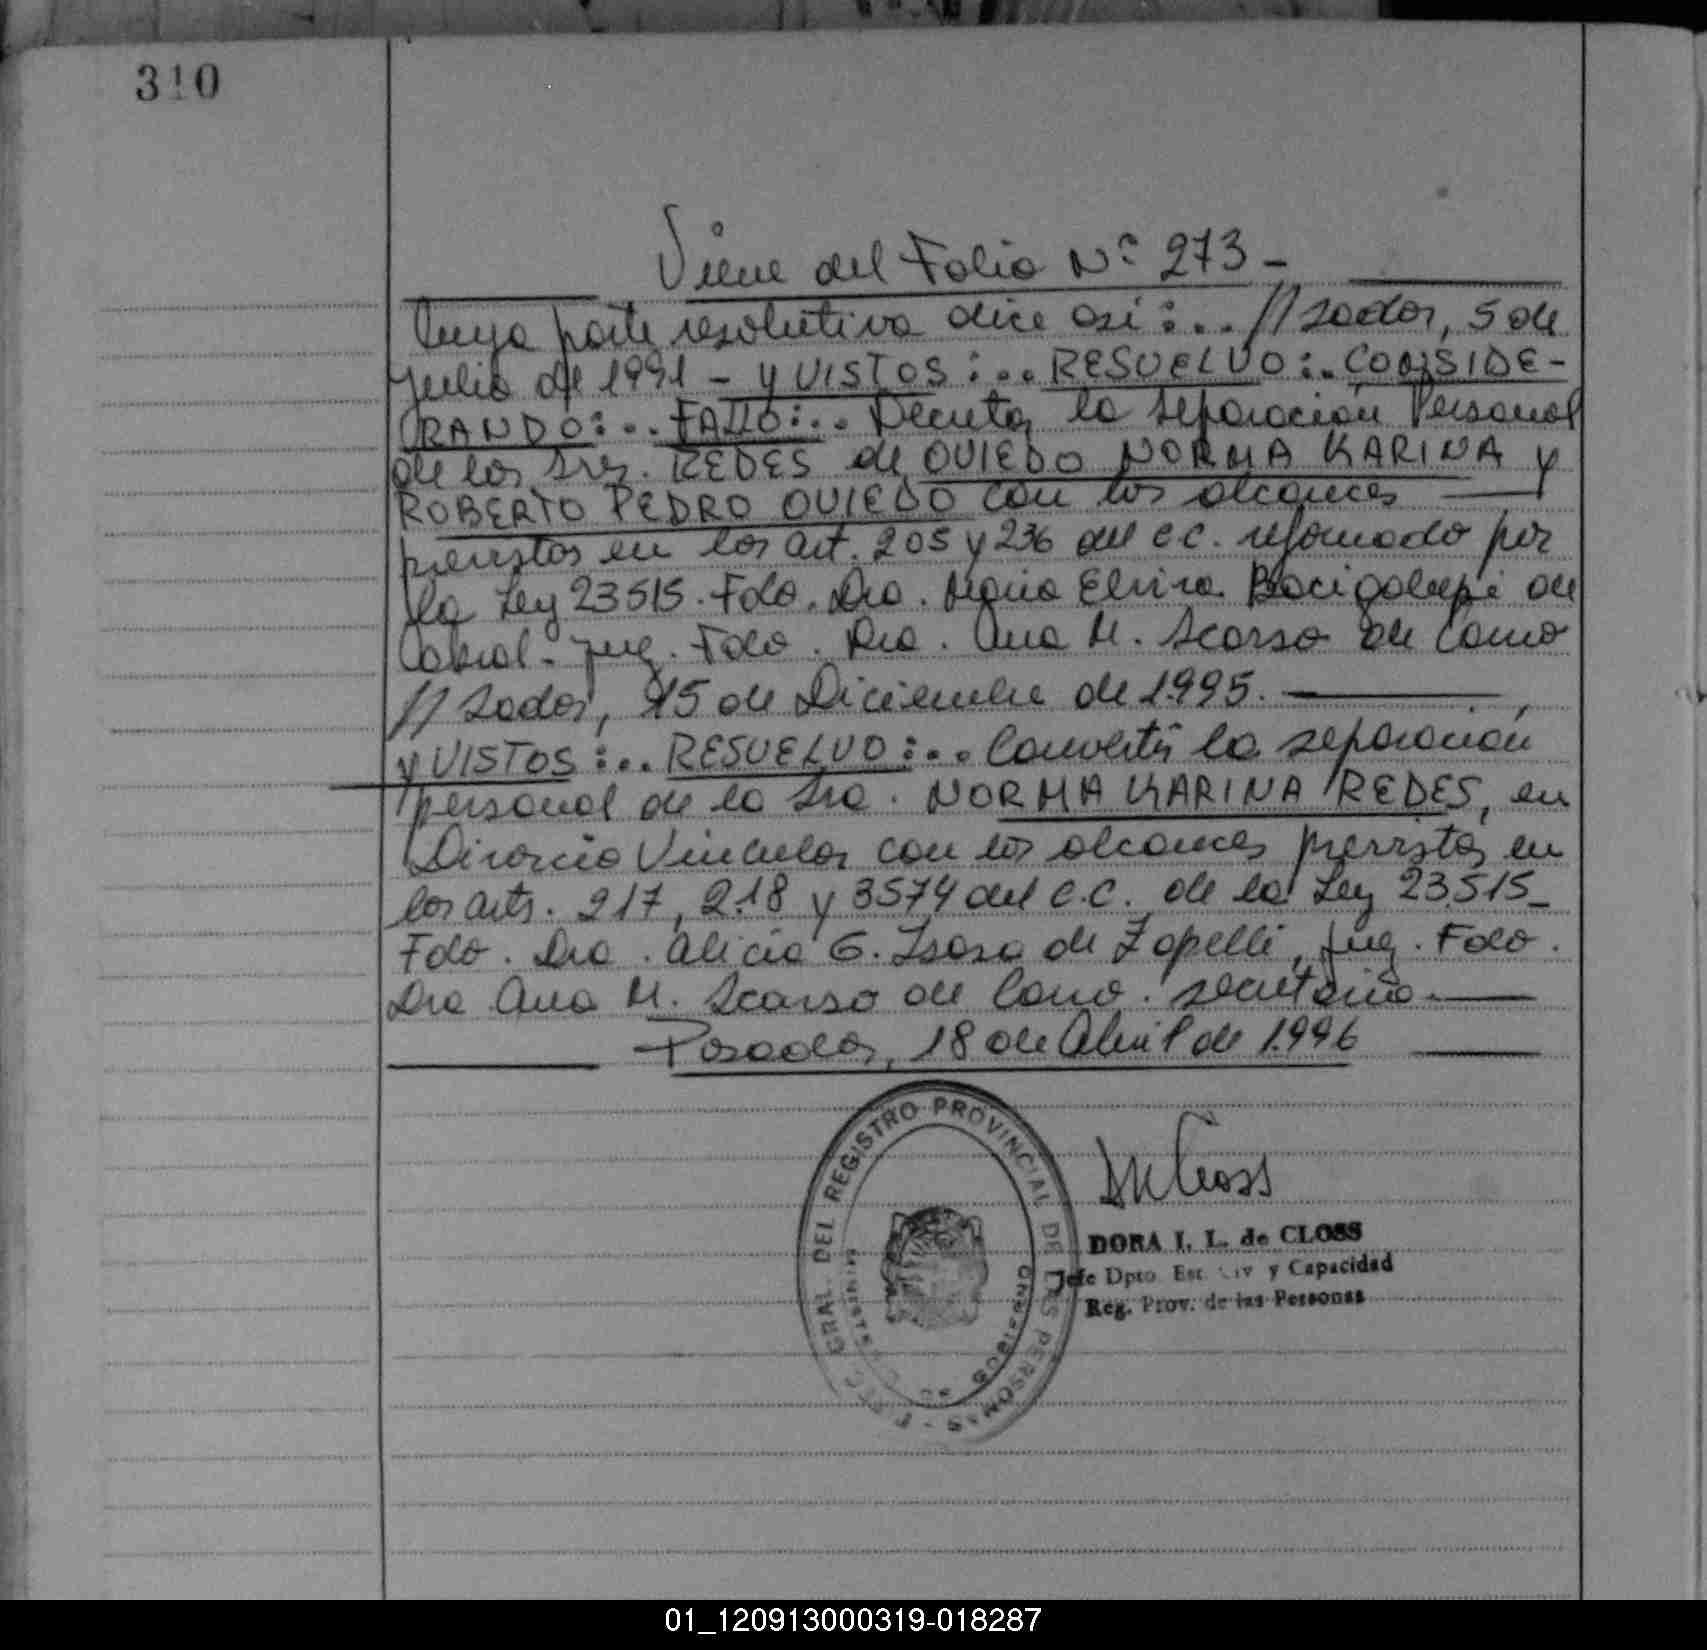 310
Viene del Folio Nº 273 -
Cuya parte resolutiva dice así:.. //sadas, 5 de
Julio de 1991 - y VISTOS:.. RESUELVO:.. CONSIDE-
RANDO:.. FALLO:.. Decretar la separación Personal
de los Sres. REDES de OVIEDO NORMA KARINA y
ROBERTO PEDRO OVIEDO con los alcances
previstos en los art. 205 y 236 del C.C. reformado por
la Ley 23515. Fdo. Dra. María Elvira Bacigalupi de
Cabral. Juez. Fdo. Dra. Ana M. Scarso de Cano
//sadas, 15 de Diciembre de 1.995.
y VISTOS:.. RESUELVO:.. Convertir la separación
personal de la Sra. NORMA KARINA REDES, en
Divorcio Vincular con los alcances previstos en
los arts. 217, 218 y 3574 del C.C. de la Ley 23.515_
Fdo. Dra. Alicia G. de Zapelli, Juez. Fdo.
Dra Ana M. Scarso de Cano. secretaria.
Posadas, 18 de Abril de 1.996
GRAL. DEL REGISTRO PROVINCIAL DE LAS PERSONAS
DORA I. L. de CLOSS
Jefe Dpto. Est. Civ y Capacidad
Reg. Prov. de las Personas
01_120913000319-018287